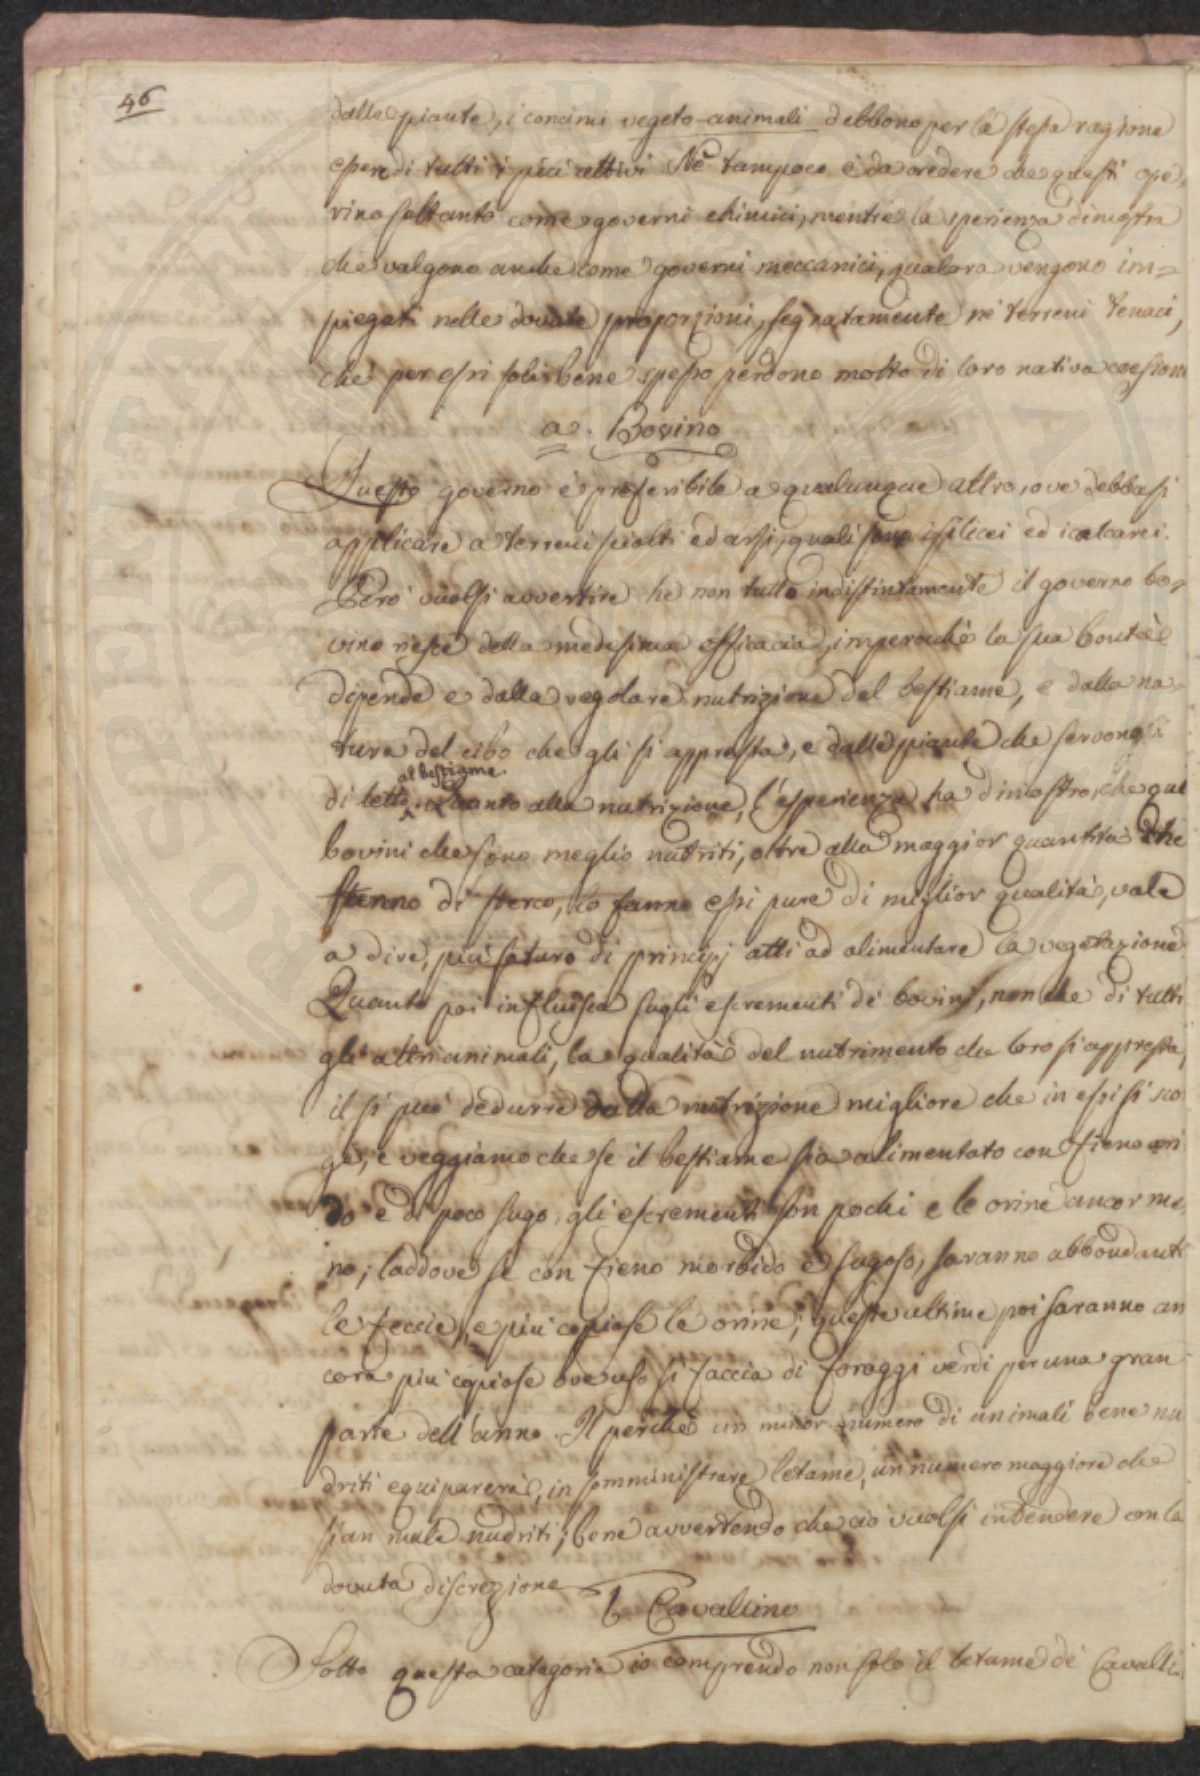 46
dalle piante, i concimi vegeto-animali debbono per la stessa ragione
essere di tutti i più attivi. Nè tampoco è da credere che questi ope-
rino soltanto come governi chimici, mentre la sperienza dimostra
che valgono anche come governi meccanici, qualora vengono im=
piegati nelle dovute proporzioni, segnatamente ne' terreni tenaci,
che per essi soli bene spesso perdono molto di loro nativa coesione
a. Bovino
Questo governo è preferibile a qualunque altro, ove debbasi
applicare a terreni sciolti ed arsi, quali sono i silicei ed i calcarei.
Però vuolsi avvertire he non tutto indistintamente il governo bo-
vino riesce della medesima efficacia, imperocchè la sua bontà
dipende e dalla regolare nutrizione del bestiame, e dalla na-
tura del cibo che gli si appresta, e dalle piante che servongli
al bestiame.
di letto. Quanto alla nutrizione, l'esperienza ha dimostro, che que'
bovini che sono meglio nutriti, oltre alla maggior quantità che
fanno di sterco, lo fanno essi pure di miglior qualità, vale
a dire, più saturo di principj atti ad alimentare la vegetazione.
Quanto poi influisca sugli escrementi de' bovini, non che di tutti
gli altri animali, la qualità del nutrimento che loro si appresta,
il si può dedurre dalla nutrizione migliore che in essi si scor
ge, e veggiamo che se il bestiame sia alimentato con fieno ari
do e di poco sugo, gli escrementi son pochi e le orine ancor me,
no; laddove se con fieno morbido e sugoso, saranno abbondanti
le feccie, e più copiose le orine; queste ultime poi saranno an
cora più copiose ove uso si faccia di foraggi verdi per una gran
parte dell'anno. Il perchè un minor numero di animali bene nu
driti equiparerà, in somministrare letame, un numero maggiore che
sian male nudriti; bene avvertendo che ciò vuolsi intendere con la
dovuta discrezione
b Cavallino
Sotto questa categoria io comprendo non solo il letame de' Cavalli